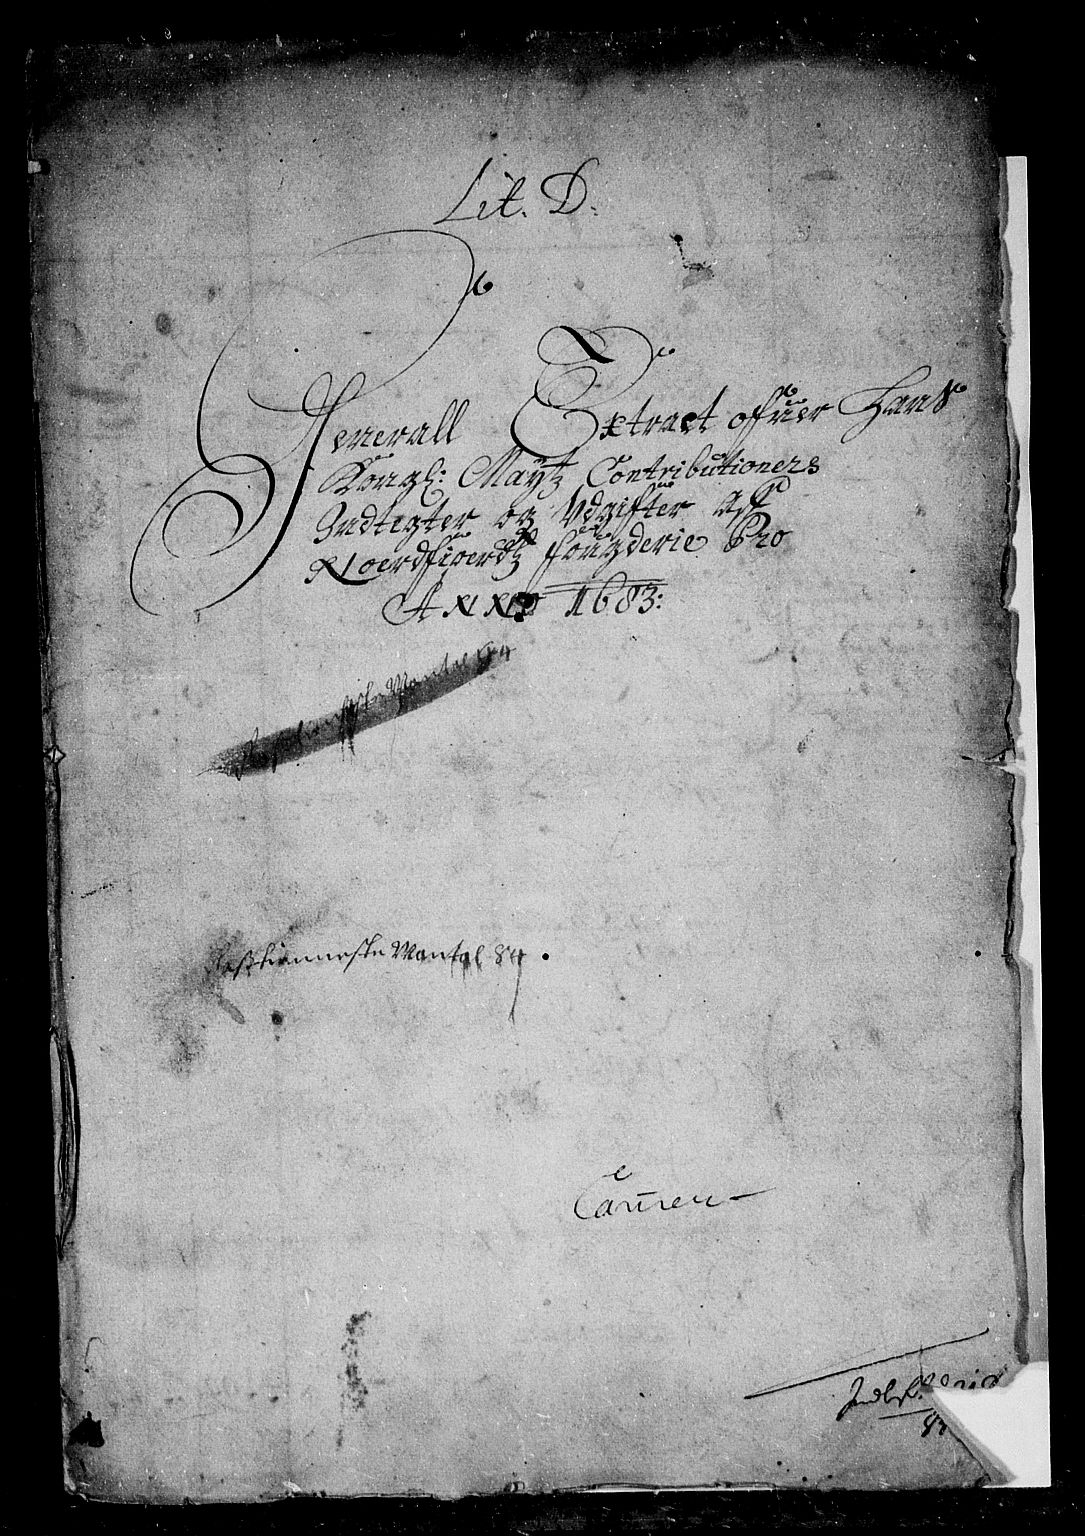 Lit. D.
Generall Extract offuer Hans
Kongl: Maytz Contributioners
Indtegter og Udgifter aff
Noerdfioerdtz fougderie Pro
Anno 1683:
Mantal 84
Mantal 84